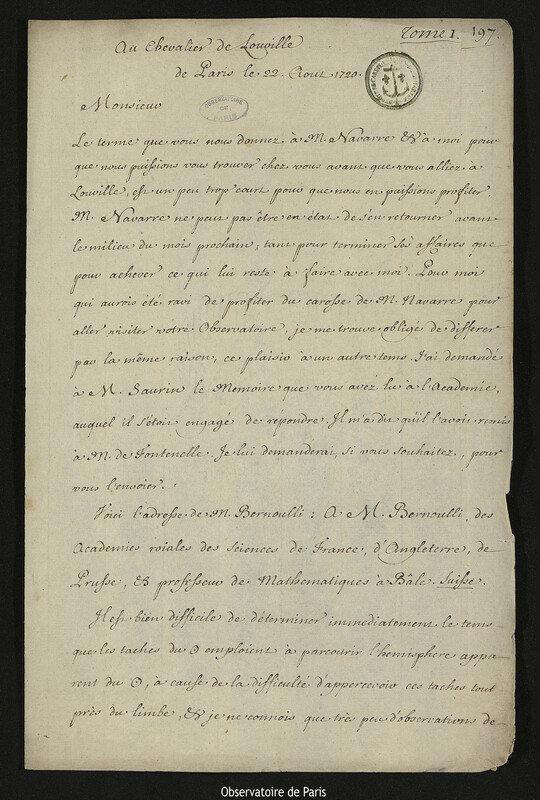 Tome 1. 197.
Au Chevalier de Louville
de Paris le 22. Aout 1720.
OBSERVATOIRE
DE
PARIS
Monsieur
Le terme que vous nous donnez à M. Navarre & à moi pour
que nous puissions vous trouver chez vous avant que vous alliez à
Louville, est un peu trop court pour que nous en puissions profiter.
M. Navarre ne peut pas être en état de s'en retourner avant
le milieu du mois prochain, tant pour terminer ses affaires que
pour achever ce qui lui reste à faire avec moi. Pour moi
qui aurois été ravi de profiter du carosse de M. Navarre pour
aller visiter votre Observatoire, je me trouve obligé de differer
par la même raison, ce plaisir à un autre tems. J'ai demandé
à M. Saurin le Memoire que vous avez lu à l'Academie,
auquel il s'étoit engagé de répondre. Il m'a dit qu'il l'avoit remis
à M. de Fontenelle. Je lui demanderai, si vous souhaitez, pour
vous l'envoier.
Voici l'adresse de M. Bernoulli : A M. Bernoulli, des
Academies roiales des Sciences de France, d'Angleterre, de
Prusse, & professeur de Mathematiques à Bâle. Suisse.
Il est bien difficile de déterminer immediatement le tems
que les taches du ☉ emploient à parcourir l'hemisphere appa
rent du ☉, à cause de la difficulté d'appercevoir ces taches tout
près du limbe, & je ne connois que très peu d'observations de
Observatoire de Paris